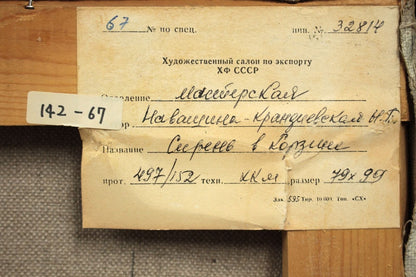 67 № по спец. инв. № 3281/4
Художественный салон по экспорту
ХФ СССР
Отделение мастерская
142-67
ор Навашина-Крандиевская Н.П.
Название Сирень в корзине
прот. 497/152 техн. ХКМ размер 79х99
Зак. 595 Тир. 10 000. Тип. «СХ»